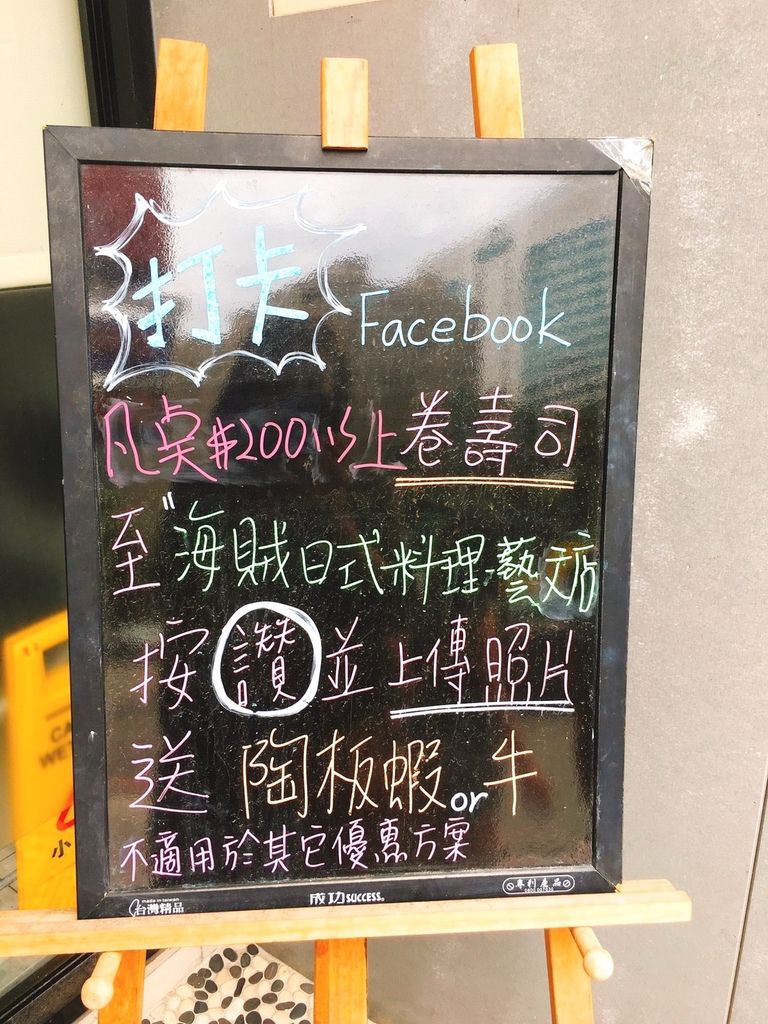 打卡 Facebook
凡点#200以上卷壽司
至"海賊日式料理-藝文店
按讚並上傳照片
送 陶板蝦or牛
不適用於其它優惠方案
made in taiwan
台灣精品
成功SUCCESS®
專利產品
小